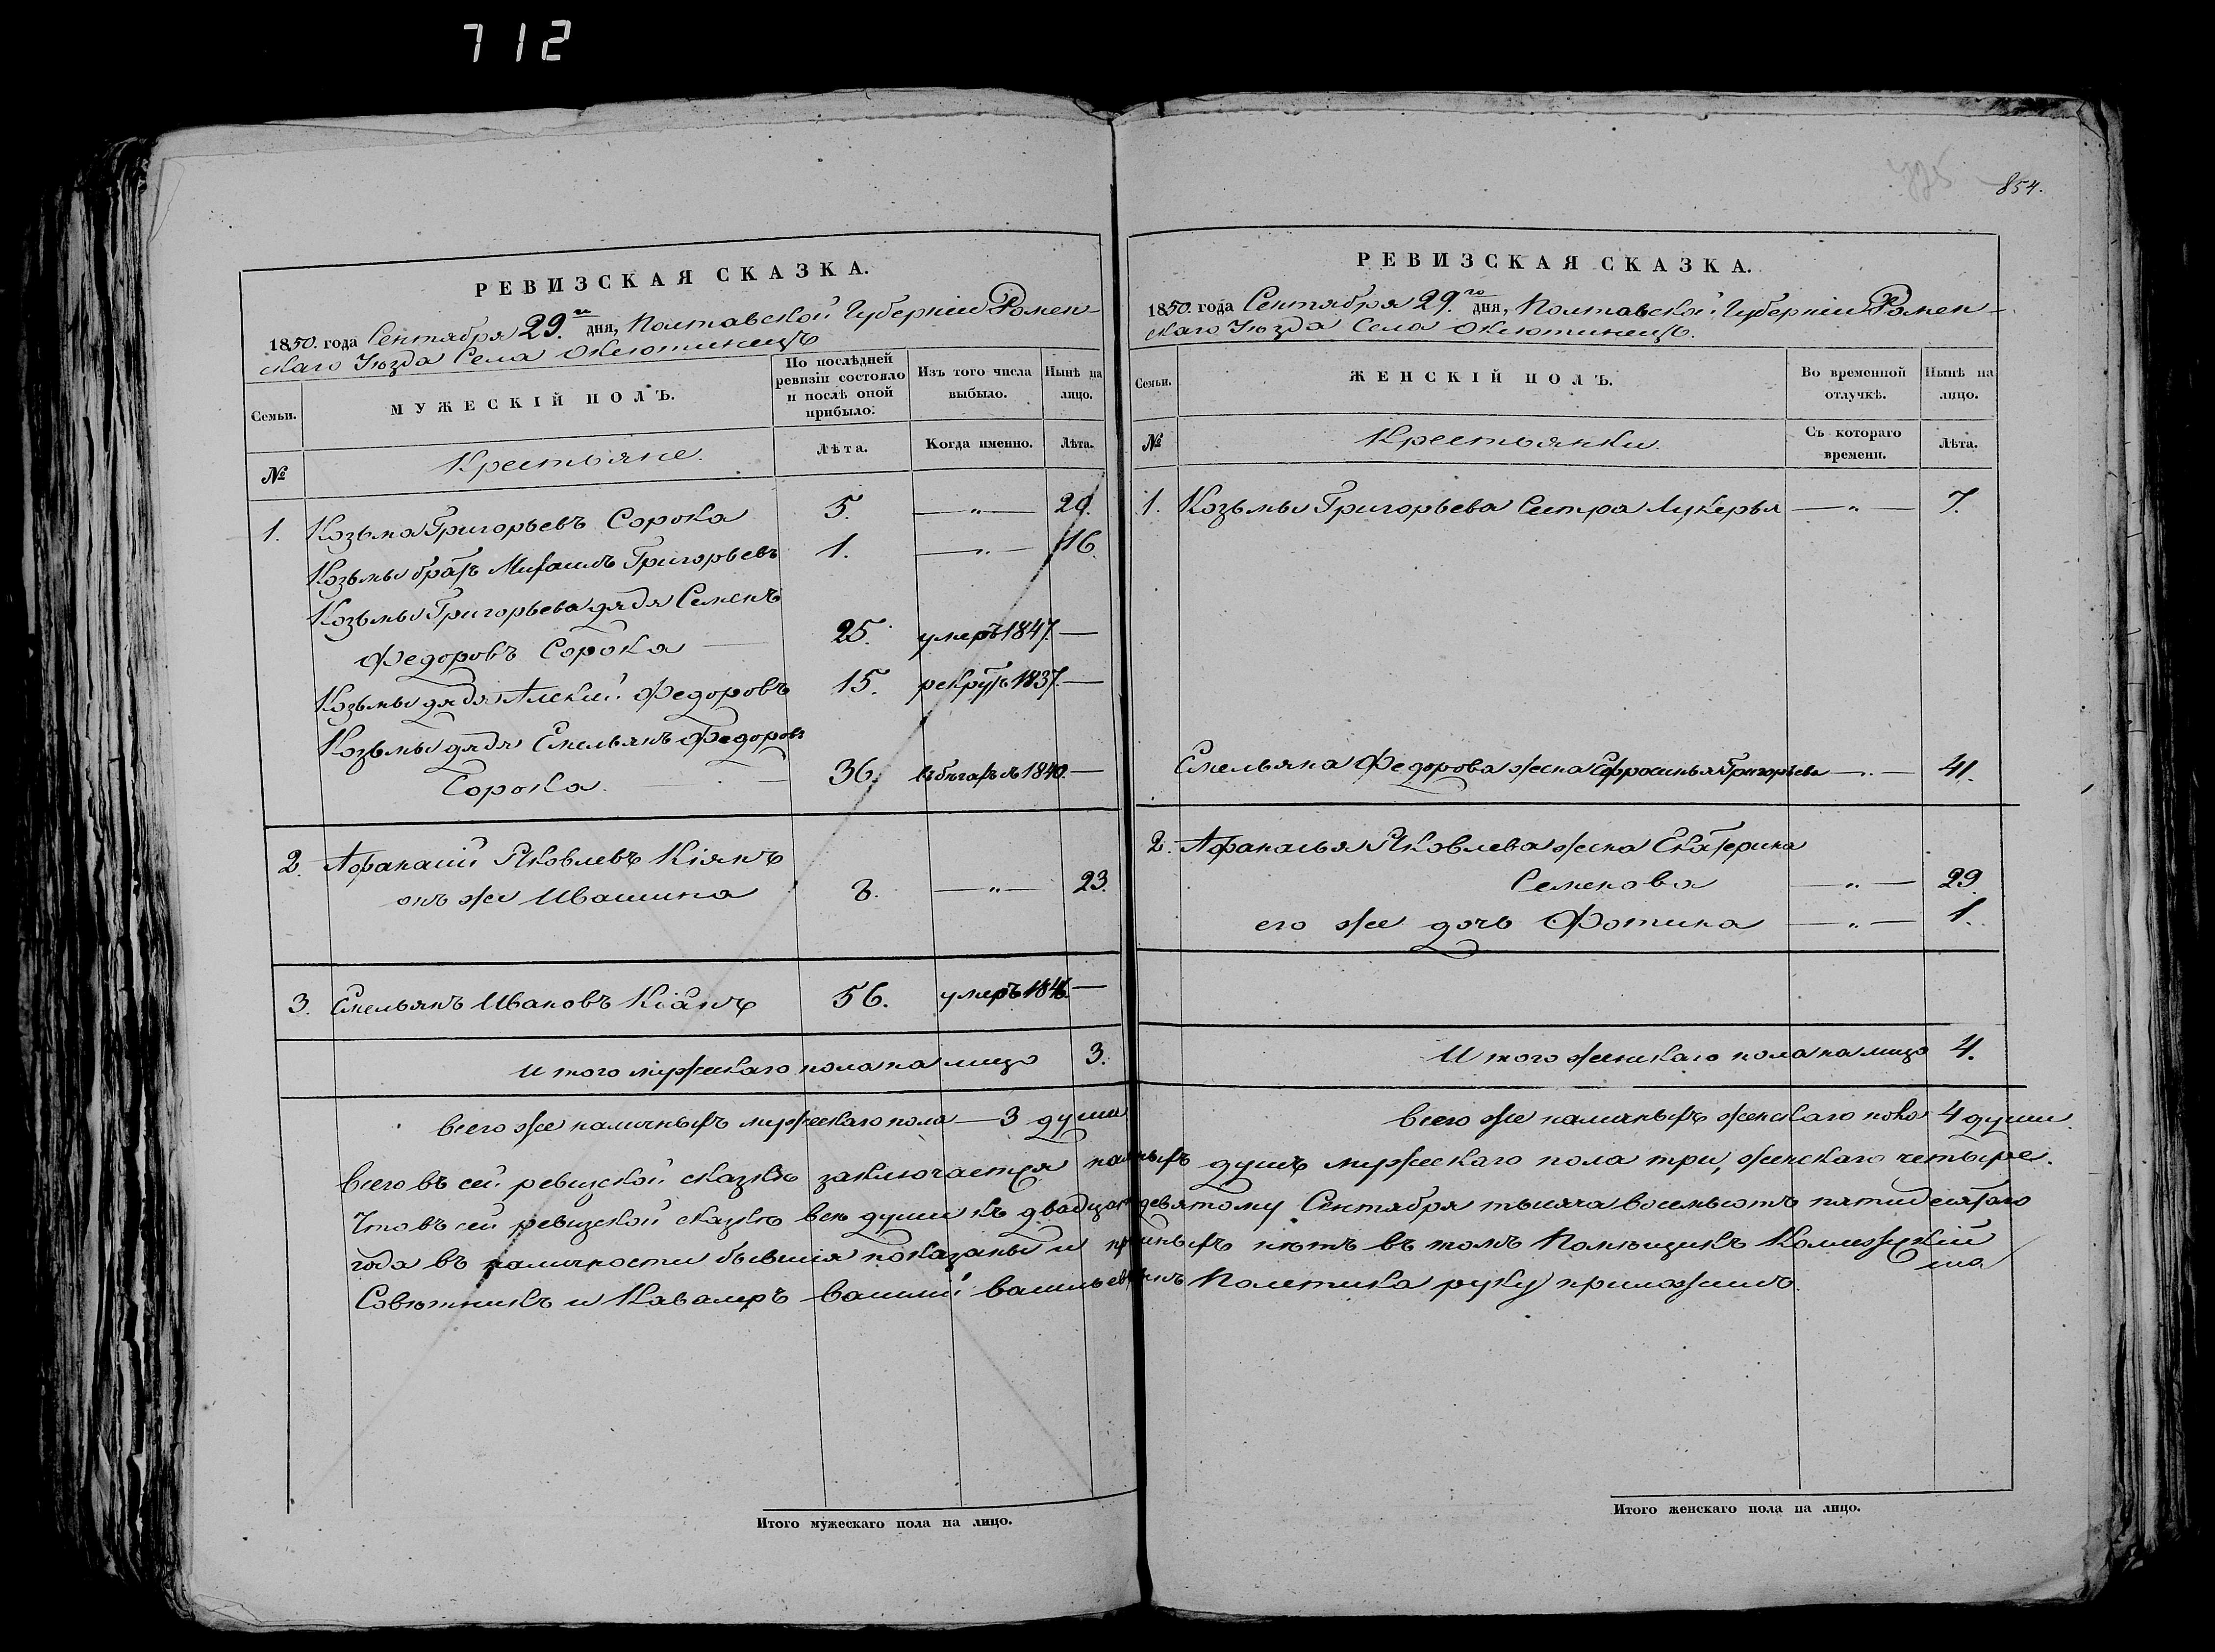 712
854.
РЕВИЗСКАЯ СКАЗКА.
1850. года Сентября 29.го дня, Полтавской Губерніи Ромен-
скаго Уѣзда Села Оксютинецъ
Семьи.
МУЖЕСКІЙ ПОЛЪ.
По послѣдней
ревизіи состояло
и послѣ оной
прибыло.
Изъ того числа
выбыло.
Нынѣ на
лицо.
№
Крестьяне.
Лѣта.
Когда именно.
Лѣта.
1. Козьма Григорьевъ Сорока 5. —„— 20.
Козьмы братъ Михаилъ Григорьевъ 1. —„— 16.
Козьмы Григорьева дядя Семенъ
Федоровъ Сорока — 25. умеръ 1847. —
Козьмы дядя Алексій Федоровъ 15. рекрутъ 1837. —
Козьмы дядя Емельянъ Федоровъ
Сорока. — 36. въ бѣгахъ съ 1840. —
2. Афанасій Яковлевъ Кіянъ
онъ же Ивашина 8. —„— 23.
3. Емельянъ Ивановъ Кіянъ 56. умеръ 1846. —
Итого мужескаго пола на лицо 3.
Всего же наличныхъ мужескаго пола — 3 души
РЕВИЗСКАЯ СКАЗКА.
1850. года Сентября 29.го дня, Полтавской Губерніи Ромен-
скаго Уѣзда Села Оксютинецъ.
Семьи.
ЖЕНСКІЙ ПОЛЪ.
Во временной
отлучкѣ.
Нынѣ на
лицо.
№
Крестьянки.
Съ котораго
времени.
Лѣта.
1. Козьмы Григорьева Сестра Лукерья —„— 7.
Емельяна Федорова жена Ефросинья Григорьева —„— 41.
2. Афанасья Яковлева жена Екатерина
Семенова —„— 29.
его же дочь Фотина —„— 1.
Итого женскаго пола на лицо 4.
Всего же наличныхъ женскаго пола 4 души.
Всего въ сей ревизской сказкѣ заключается наличныхъ душъ мужескаго пола три, женскаго четыре.
Что въ сей ревизской сказкѣ всѣ души къ двадцать девятому Сентября тысяча восемьсотъ пятидесятаго
года въ наличности бывшія показаны и прописныхъ нѣтъ въ томъ Помѣщикъ Коллежскій
Совѣтникъ и Кавалеръ Василій Васильевъ сынъ Полетика руку приложилъ.
Итого мужескаго пола на лицо.
Итого женскаго пола на лицо.